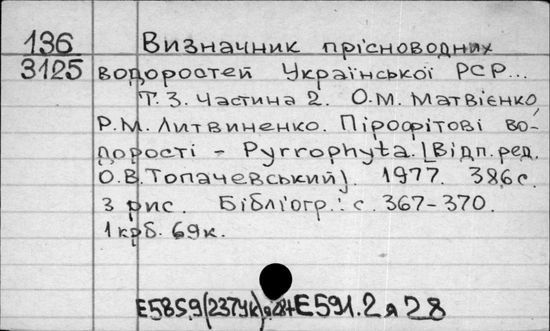 136 Визначник прісноводних
3125 водоростей Української РСР...
Т. 3. Частина 2. О.М. Матвієнко,
Р.М. Литвиненко. Пірофітові во-
дорості - Pyrrophyta. [Відп. ред.
О.В. Топачевський]. 1977. 386с.
з рис. Бібліогр.: с. 367-370.
1 крб. 69к.
Е585.9(237Ук)я28+Е591.2я28